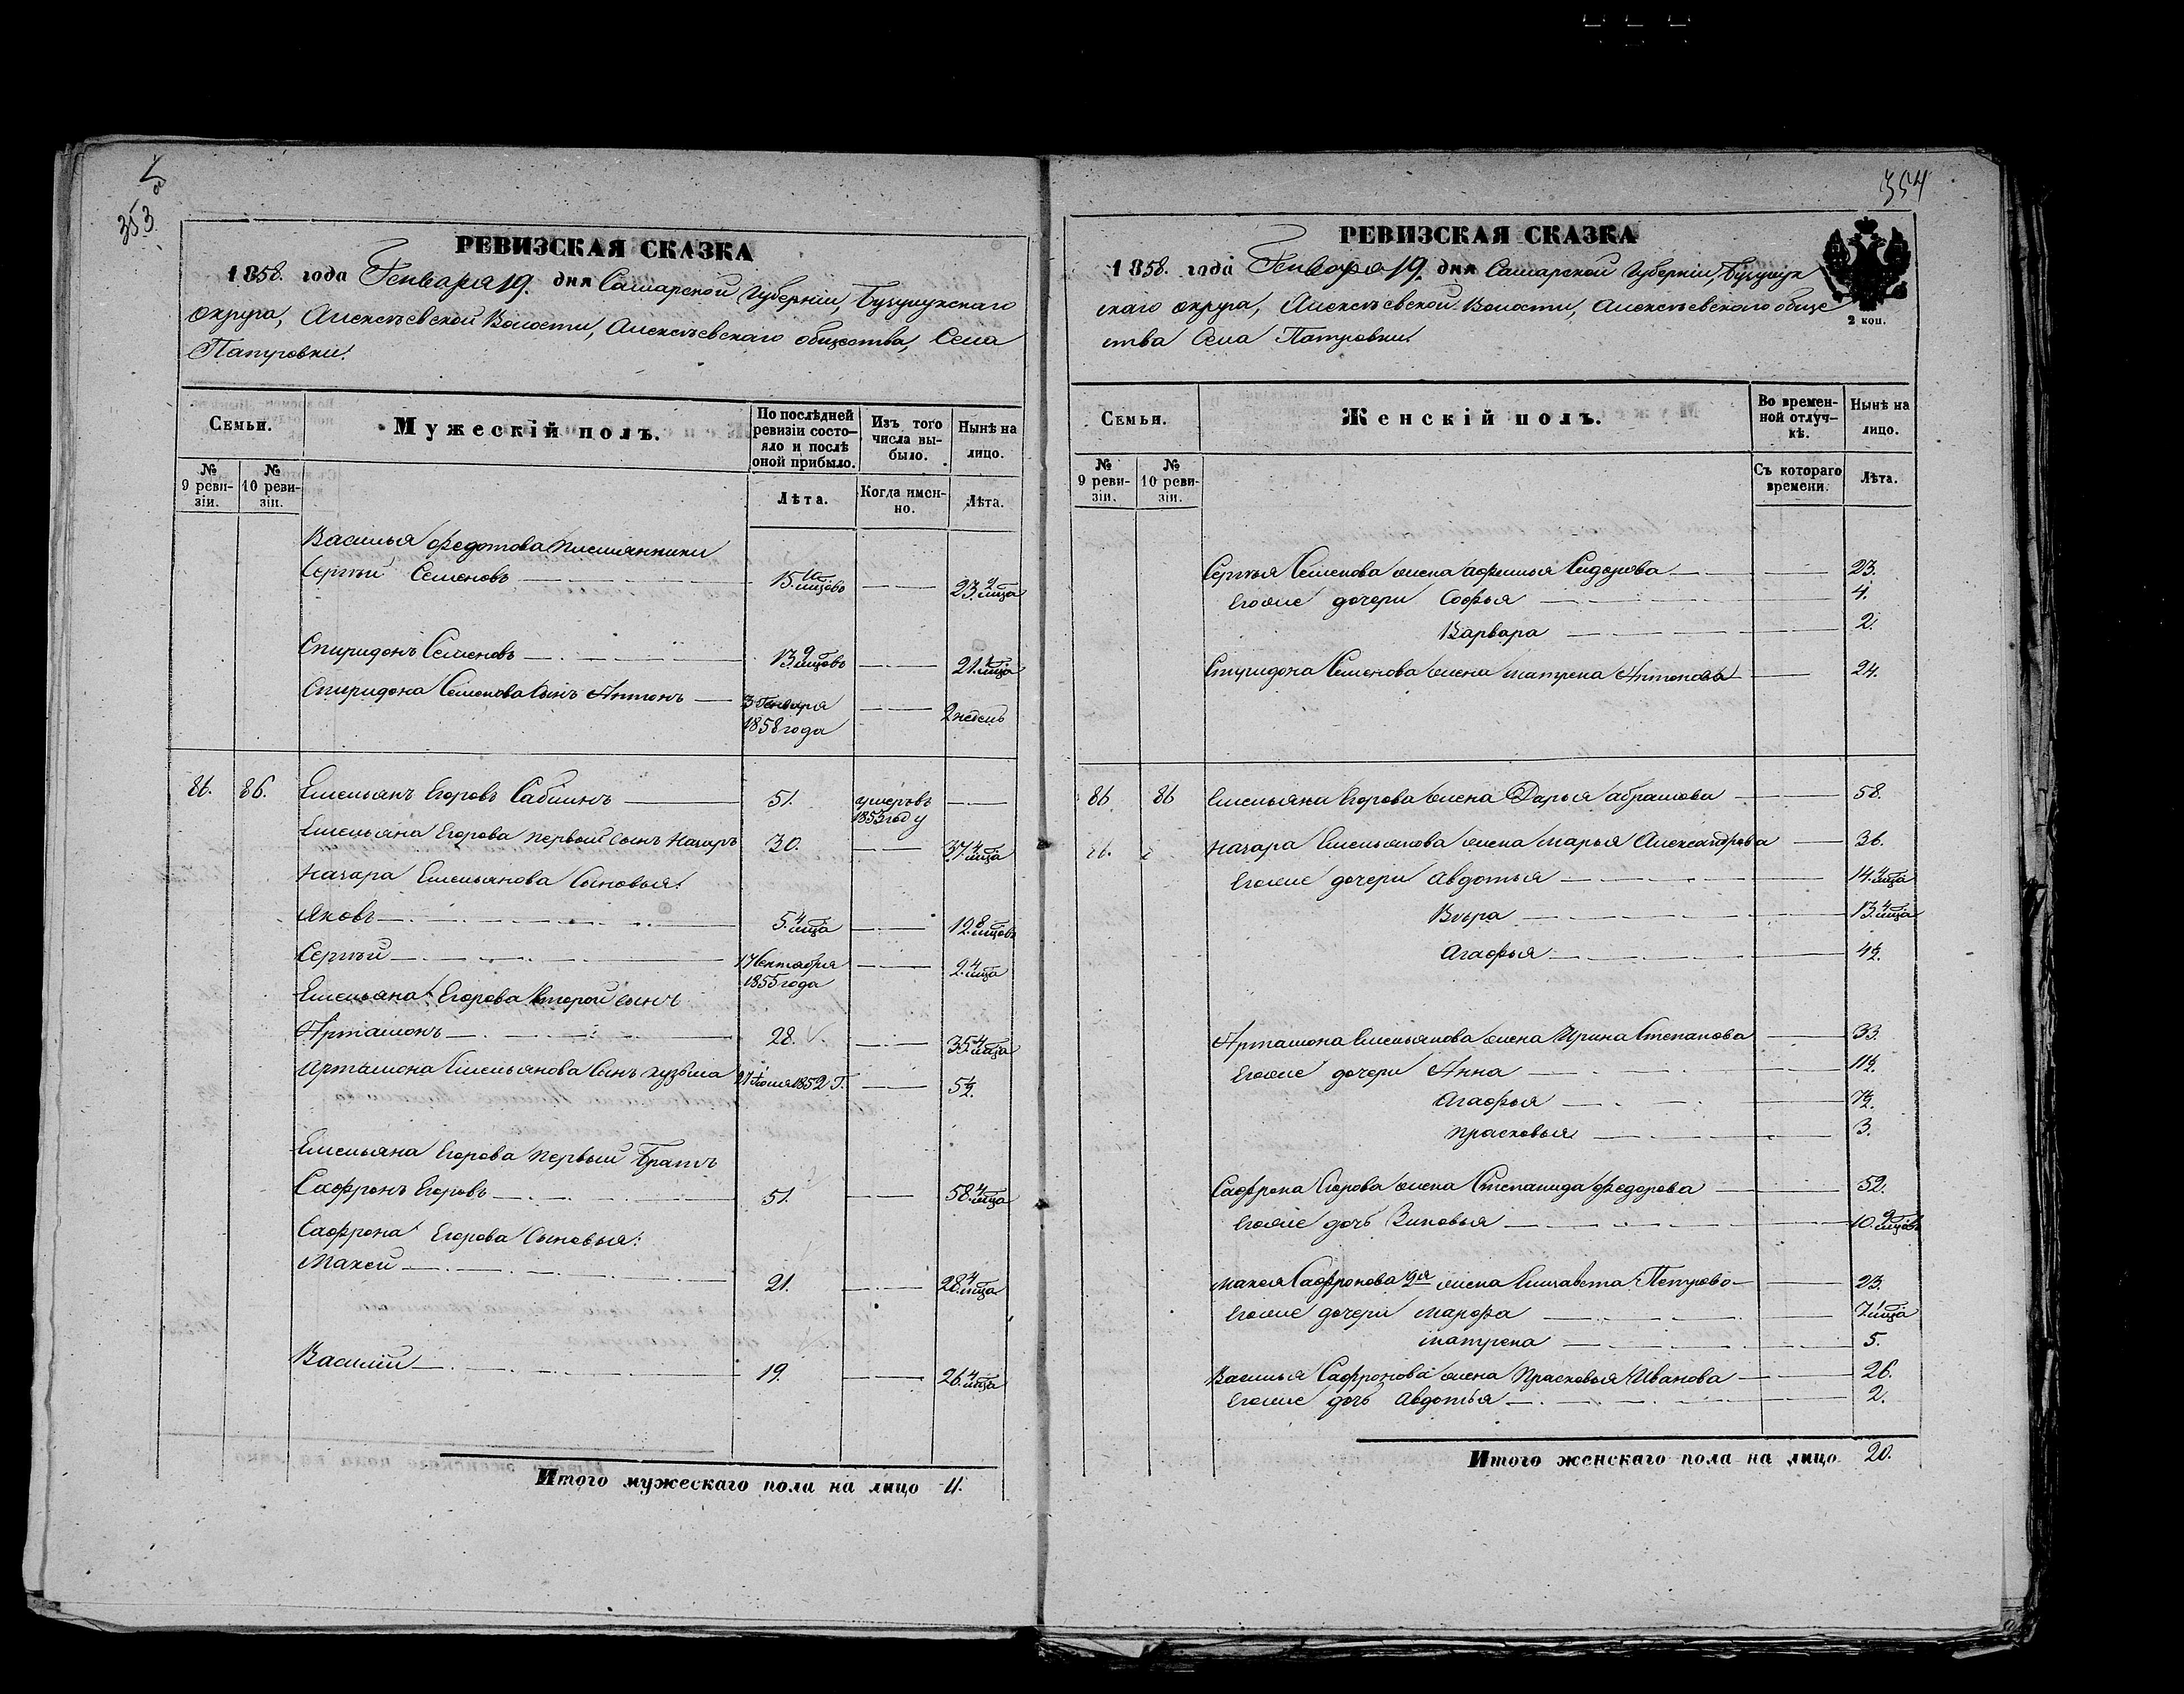 353
РЕВИЗСКАЯ СКАЗКА
1858. года Генваря 19. дня Самарской Губерніи, Бузулукскаго
округа, Алексѣевской Волости, Алексѣевскаго общества, Села
Патровки.
Семьи.
Мужескій полъ.
По послѣдней ревизіи состо-
яло и послѣ оной прибыло.
Изъ того числа вы-
было.
Нынѣ на лицо.
№ 9 реви-
зіи.
№ 10 реви-
зіи.
Лѣта.
Когда имен-
но.
Лѣта.
Василья Федотова племянники
Сергѣй Семеновъ 15. 10 мцовъ 23. 2 мца
Спиридонъ Семеновъ 13. 9 мцовъ 21. 1 мца
Спиридона Семенова сынъ Антонъ 3 Генваря 1858 года 2 недель
86. 86. Емельянъ Егоровъ 51. умеръ въ 1853 году
Емельяна Егорова первый сынъ Назаръ 30. 37. 4 мца
Назара Емельянова сыновья:
Яковъ 5. 4 мца 12. 8 мцовъ
Сергѣй 17 Сентября 1855 года 2. 4 мца
Емельяна Егорова второй сынъ
Артамонъ 28. 35. 4 мца
Артамона Емельянова сынъ Кузьма 1852 г. 5½.
Емельяна Егорова первый братъ
Сафронъ Егоровъ 51. 58. 4 мца
Сафрона Егорова сыновья:
Макей 21. 28. 4 мца
Василій 19. 26. 4 мца
Итого мужескаго пола на лицо 11.
354
РЕВИЗСКАЯ СКАЗКА
1858. года Генваря 19. дня Самарской Губерніи, Бузулук
скаго округа, Алексѣевской Волости, Алексѣевскаго обще
ства Села Патровки.
2 коп.
Семьи.
Женскій полъ.
Во времен-
ной отлуч-
кѣ.
Нынѣ на лицо.
№ 9 реви-
зіи.
№ 10 реви-
зіи.
Съ котораго времени.
Лѣта.
Сергѣя Семенова жена Афимья Сидорова 23.
Егоже дочери Софья 4.
Варвара 2.
Спиридона Семенова жена Матрена Антонова 24.
86 86 Емельяна Егорова жена Дарья Абрамова 58.
Назара Емельянова жена Марья Александрова 36.
Егоже дочери Авдотья 14. 4 мца
Вѣра 13. 4 мца
Агафья 4½.
Артамона Емельянова жена Ирина Степанова 33.
Егоже дочери Анна 11½.
Агафья 7½.
Прасковья 3.
Сафрона Егорова жена Степанида Федорова 52.
Егоже дочь Зиновья 10. 9 мцовъ
Макея Сафронова 2я жена Елисавета Петрова 23.
Егоже дочери Марфа 7. 1 мца
Матрена 5.
Василья Сафронова жена Прасковья Иванова 26.
Егоже дочь Авдотья 2.
Итого женскаго пола на лицо 20.